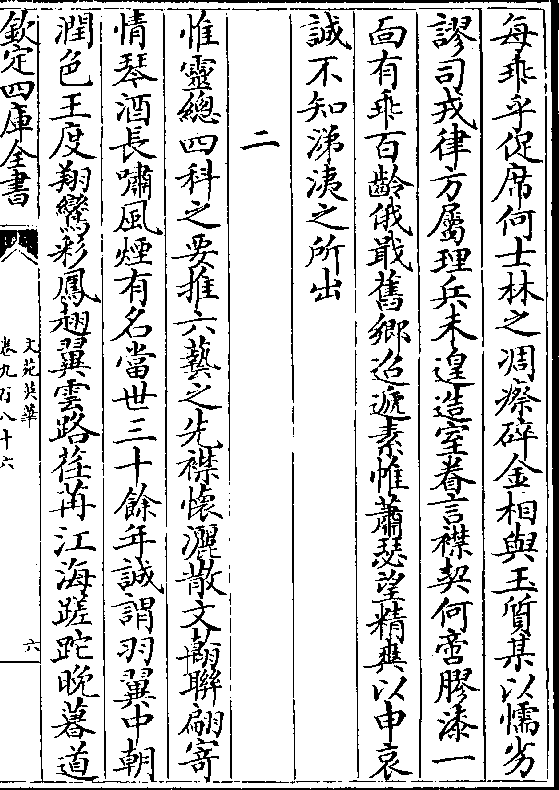 每乖乎促席何士林之凋瘵碎金相與玉質某以懦劣
謬司戎律方屬理兵未遑造室眷言襟契何啻膠漆一
面有乖百齡俄戢舊鄉迢遞素帷蕭瑟望精爽以申哀
誠不知涕洟之所出
二
惟靈總四科之要推六藝之先襟懷灑散文藻聯翩寄
情琴酒長嘯風煙有名當世三十餘年誠謂羽翼中朝
潤色王度翔鸞彩鳳翅翼雲路荏苒江海蹉跎晚暮道
欽定四庫全書
文苑英華
卷九百八十六
六